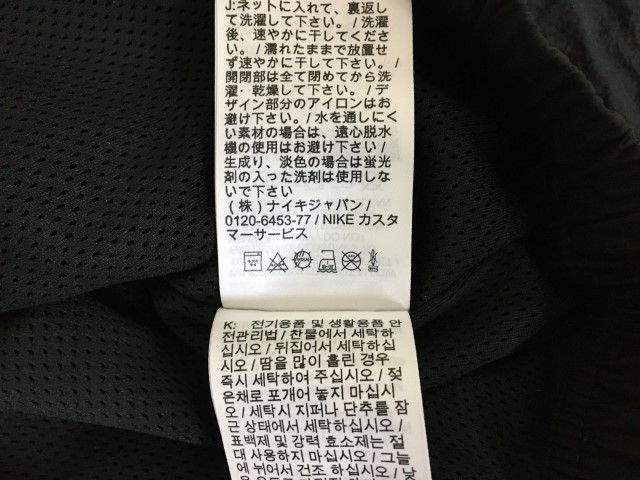 J:ネットに入れて、裏返し
て洗濯して下さい。/ 洗濯
後、速やかに干してくださ
い。/ 濡れたままで放置せ
ず速やかに干して下さい。/
開閉部は全て閉めてから洗
濯・乾燥して下さい。/ デ
ザイン部分のアイロンはお
避け下さい。/ 水を通しにく
い素材の場合は、遠心脱水
機の使用はお避け下さい /
生成り、淡色の場合は蛍光
剤の入った洗剤は使用しな
いで下さい
(株) ナイキジャパン /
0120-6453-77 / NIKE カスタ
マーサービス
K: 전기용품 및 생활용품 안
전관리법 / 찬물에서 세탁하
십시오 / 뒤집어서 세탁하십
시오 / 땀을 많이 흘린 경우
즉시 세탁하여 주십시오 / 젖
은채로 포개어 놓지 마십시
오 / 세탁시 지퍼나 단추를 잠
근 상태에서 세탁하십시오 /
표백제 및 강력 효소제는 절
대 사용하지 마십시오 / 그늘
에 뉘어서 건조 하십시오 / 낮